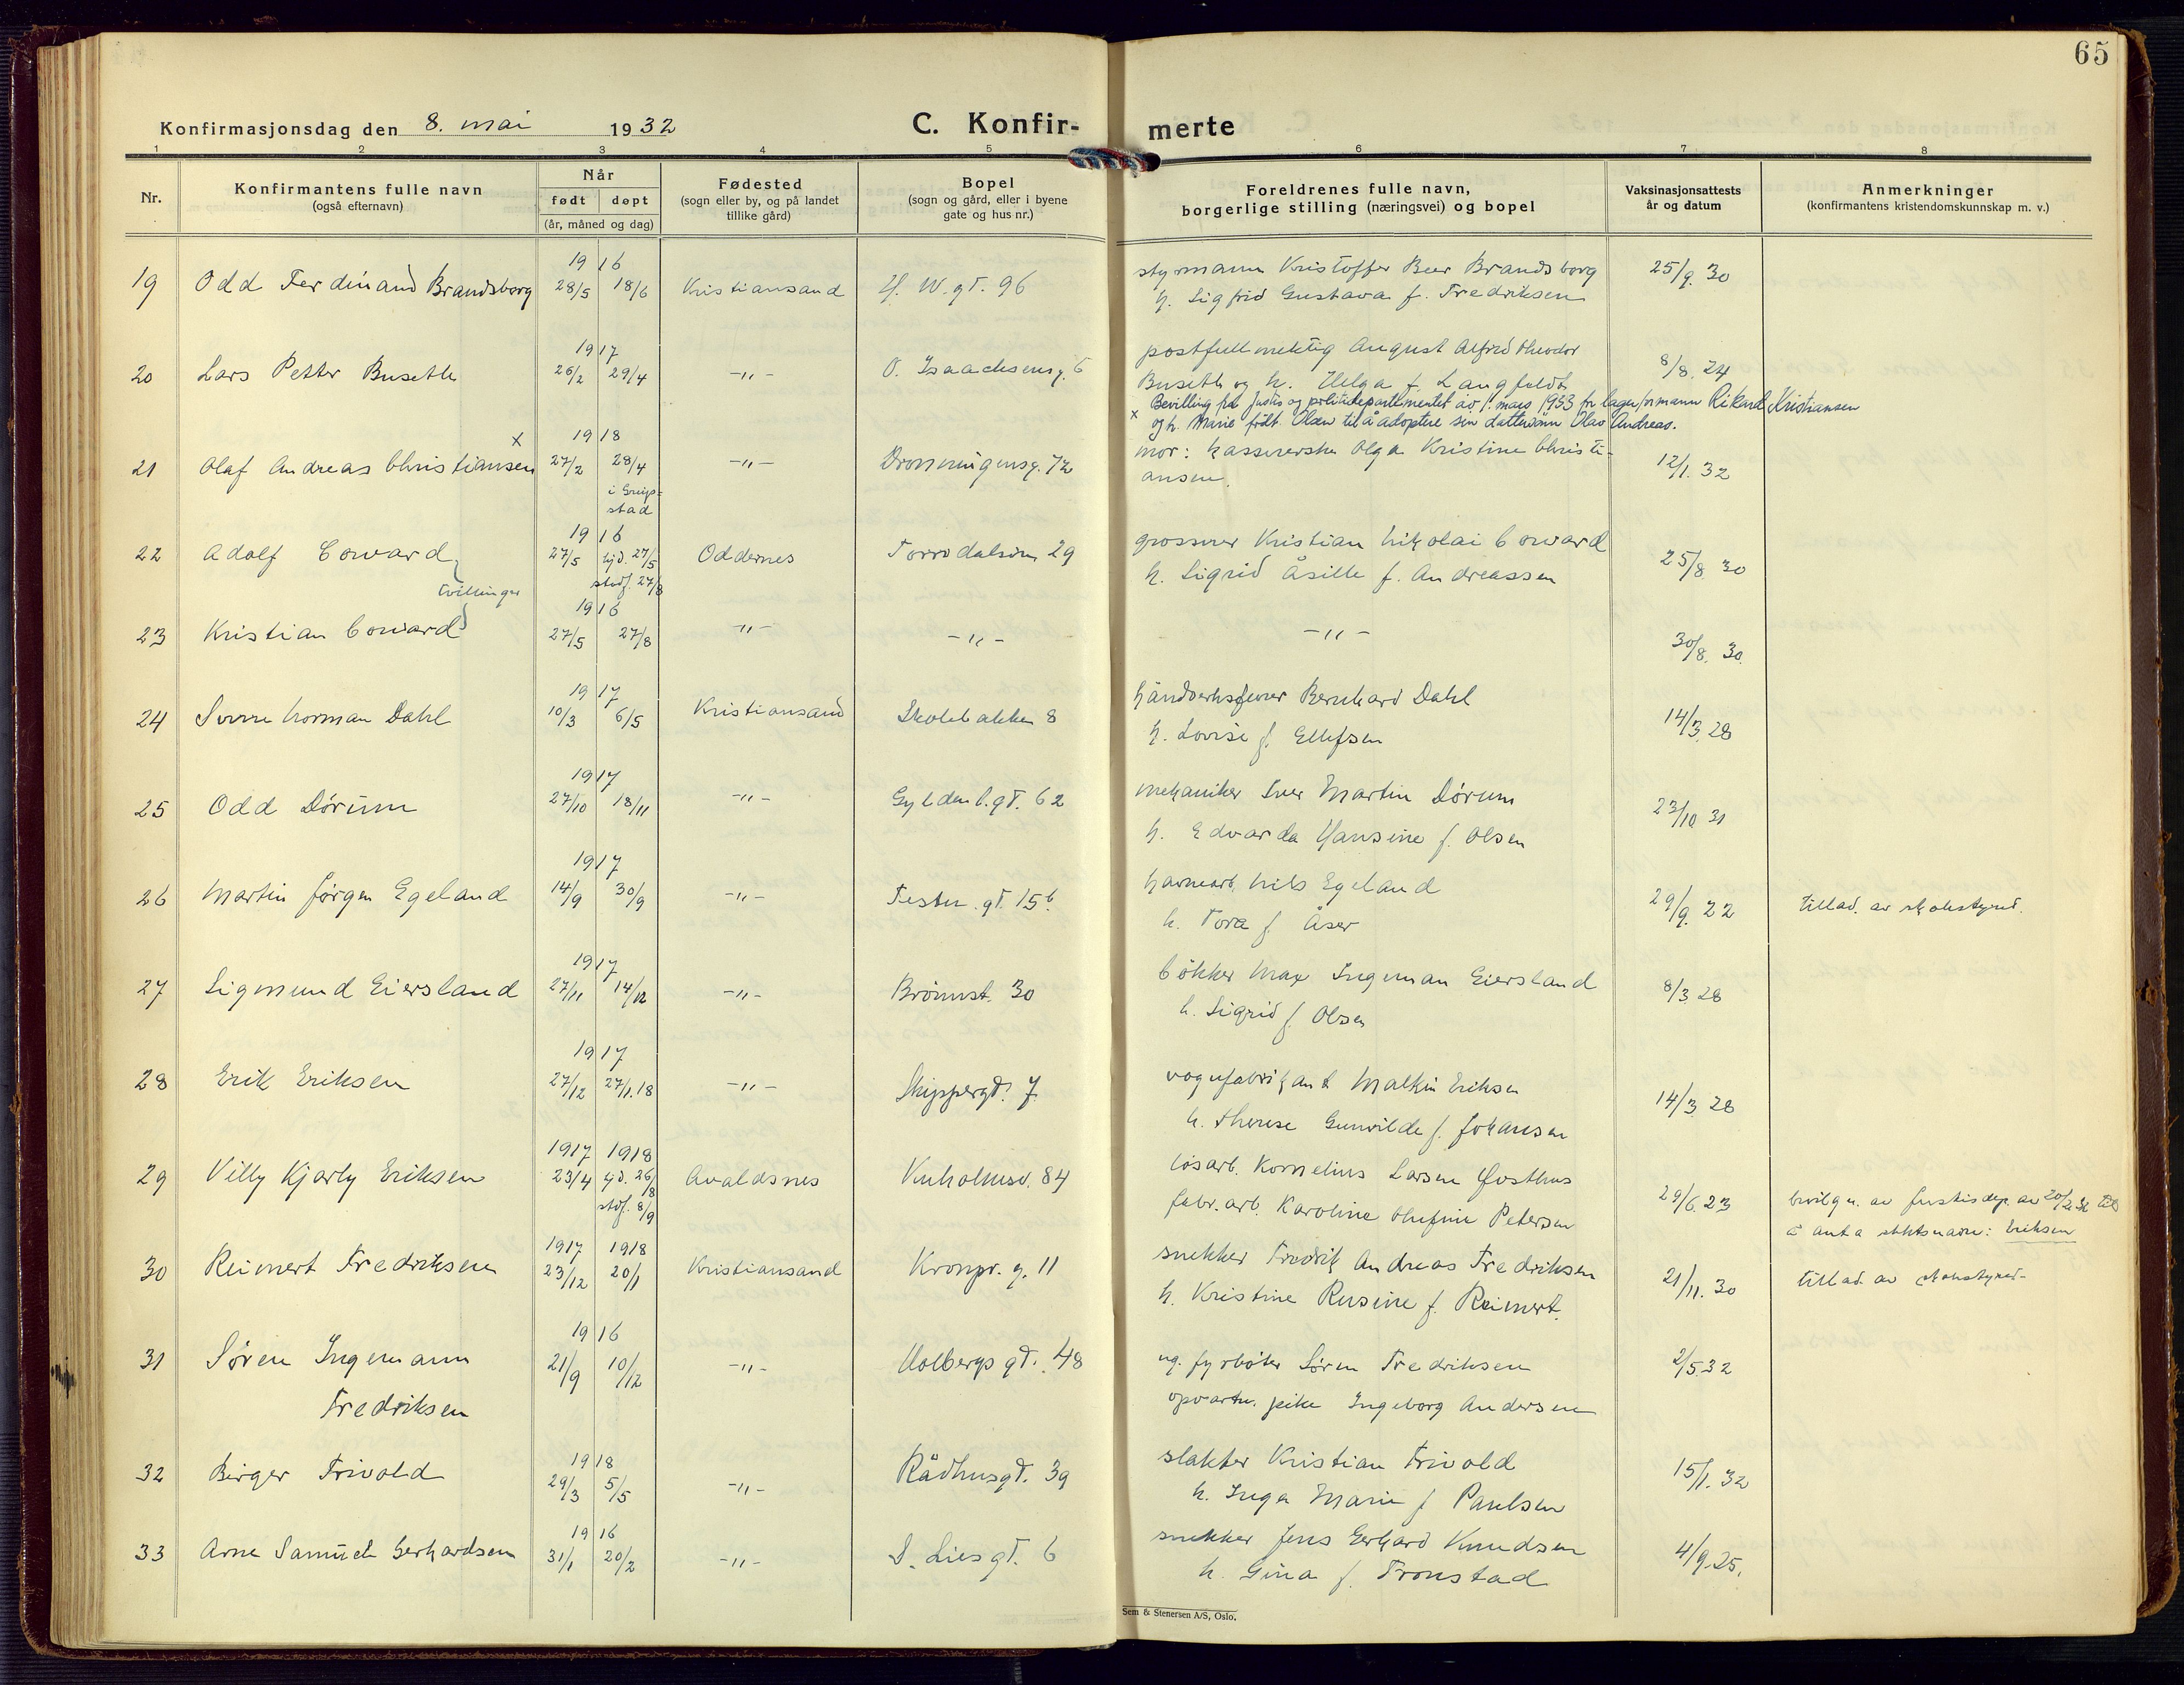 65
Konfirmasjonsdag den 8. mai 1932
C. Konfir-
merte
1 2 3 4 5 6 7 8
Nr.
Konfirmantens fulle navn
(også efternavn)
Når
født døpt
(år, måned og dag)
Fødested
(sogn eller by, og på landet
tillike gård)
Bopel
(sogn og gård, eller i byene
gate og hus nr.)
Foreldrenes fulle navn,
borgerlige stilling (næringsvei) og bopel
Vaksinasjonsattests
år og datum
Anmerkninger
(konfirmantens kristendomskunnskap m. v.)
1916
19 Odd Ferdinand Brandsborg 28/5 18/6 Kristiansand H. W. gt. 96
styrmann Kristoffer Beer Brandsborg 25/9. 30
h. Sigfrid Gustava f. Fredriksen
1917
20 Lars Petter Buseth 26/2 29/4 -"- O. Isaachsensg. 6
postfullmektig August Alfred Theodor 8/8. 24
Buseth og h. Helga f. Langfeldt
x Bevilling fra Justis og politidepartementet av 1. mars 1933 for lagerformann Rikard Kristiansen
og h. Marie født Olsen til å adoptere sin dattersønn Olav Andreas.
x 1918
21 Olaf Andreas Christiansen 27/2 28/4 -"- Dronningensg. 72
i Greip-
stad
mor: kassererske Olga Kristine Christi- 12/1. 32
ansen.
1916
22 Adolf Coward 27/5 hjd. 27/5 Oddernes Torrisdalsvn. 29
stadf. 27/8
tvillinger
grosserer Kristian Nikolai Coward 25/8 30
h. Sigrid Åsille f. Andreassen
1916
23 Kristian Coward 27/5 27/8 -"- -"- -"- 30/8. 30.
1917
24 Sverre Norman Dahl 10/3 6/5 Kristiansand Skolebakken 8
håndverksfører Bernhard Dahl 14/3. 28
h. Lovise f. Ellefsen
1917
25 Odd Dørum 27/10 18/11 -"- Gyldenl. gt. 62
mekaniker Iver Martin Dørum 23/10 31
h. Edvarda Hansine f. Olsen
1917
26 Martin Jørgen Egeland 14/9 30/9 -"- Festn. gt. 15b.
havnearb. Nils Egeland 29/9. 22 tillad. av skolestyret.
h. Tora f. Åser
1917
27 Sigmund Eiersland 27/11 14/12 -"- Brønnst. 30
bøkker Max Ingeman Eiersland 8/3 28
h. Sigrid f. Olsen
1917
28 Erik Eriksen 27/12 27/1.18 -"- Skippergt. 7
vognfabrikant Malkin Eriksen 14/3 28
h. Therese Gunvilde f. Johansen
1917 1918
29 Villy Kjarly Eriksen 23/4 hjd. 26/8 Avaldsnes Kuholmsv. 84
stdf. 8/9
løsarb. Kornelius Larsen Østhus 29/6. 23
fabr.arb. Karoline Olufine Petersen
bevilgn. av Justisdep. av 20/2 32 til
å anta slektsnavn: Eriksen
1917 1918
30 Reimert Fredriksen 23/12 20/1 Kristiansand Kronpr. g. 11
snekker Fredrik Andreas Fredriksen 21/11. 30 tillad. av skolestyret.
h. Kristine Rusine f. Reimert.
1916
31 Søren Ingemann 21/9 10/12 -"- Holbergs gt. 48
Fredriksen
ug. fyrbøter Søren Fredriksen 2/5 32
opvartn. pike Ingeborg Andersen
1918
32 Birger Frivold 29/3 5/5 -"- Rådhusgt. 39
slakter Kristian Frivold 15/1. 32
h. Inga Marie f. Paulsen
1916
33 Arne Samuel Gerhardsen 31/1 20/2 -"- S. Liesgt. 6
snekker Jens Gerhard Knudsen 4/9. 25.
h. Gina f. Tronstad
Sem & Stenersen A/S, Oslo.